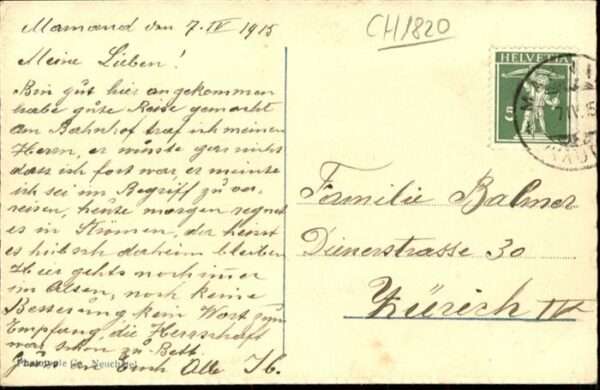 Mamand den 7. IV 1915
Meine Lieben!
Bin gut hier angekommen
habe gute Reise gemacht
am Bahnhof traf ich meinen
Herrn, er wüsste gar nicht
dass ich fort war, er meinte
ich sei im Begriff zu ver-
reisen, heute morgen regnet
es in Strömen, da heisst
es hübsch daheim bleiben
Hier gehts noch immer
im Alten, noch keine
Besserung kein Wort zum
Empfang, die Herrschaft
war schon zu Bett.
Euch Alle
Phototypie Co. Neuchâtel
CH1820
HELVETIA
5
Familie Balmer
Dienerstrasse 30
Zürich IV